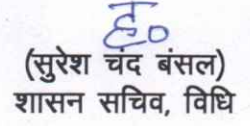 ह०
(सुरेश चंद बंसल)
शासन सचिव, विधि